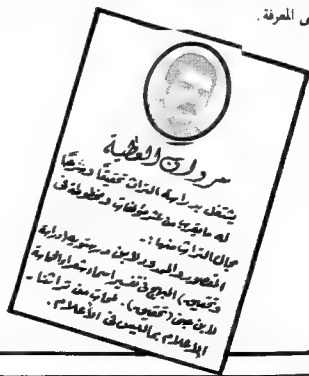 ى المعرفة .
مروان العطية
يشتغل بدراسة التراث تحقيقًا وشرحًا
له ما يقرب من مؤلفات ومخطوطة في
مجال التراث منها :
المقصور والممدود لابن درستويه (دراسة
وتحقيق) المبهج في تفسير أسماء شعراء الحماسة
لابن جني (تحقيق) . لمحات من تراثنا .
الإعلام بما ليس في الأعلام .